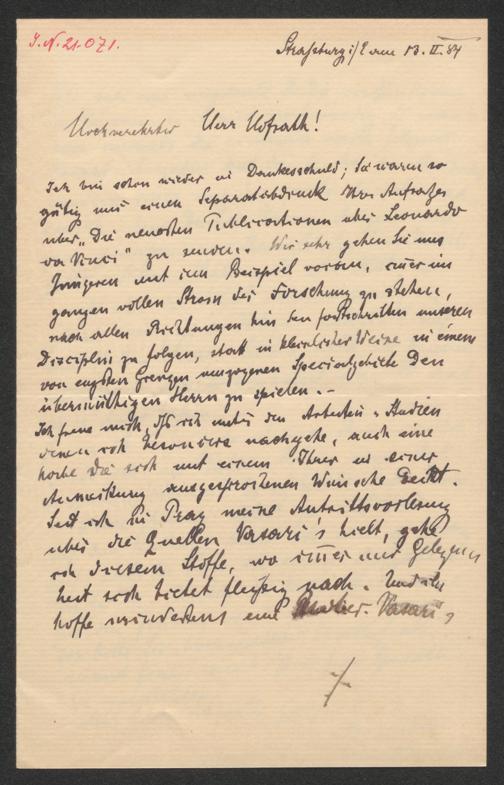 J.N. 21.071.
Straßburg i/E am 13. II. 84
Hochverehrter Herr Hofrath!
Ich bin schon wieder in Dankesschuld; Sie waren so
gütig mir einen Separatabdruck Ihres Aufsatzes
über „Die neuesten Publicationen über Leonardo
da Vinci" zu senden. Wie sehr gehen Sie uns
Jüngeren mit dem Beispiel voran, immer im
ganzen vollen Strom der Forschung zu stehen,
nach allen Richtungen hin den Fortschritten unserer
Disciplin zu folgen, statt in kleinlicher Weise in einem
von engsten Grenzen umzogenen Specialgebiete den
übermüthigen Herrn zu spielen. –
Ich freue mich, daß ich unter den Arbeiten u. Studien
denen ich besonders nachgehe, auch eine
habe die sich mit einem Ihrer in einer
Anmerkung ausgesprochenen Wünsche deckt.
Seit ich in Prag meine Antrittsvorlesung
über die Quellen Vasari's hielt, gehe
ich diesem Stoffe, wo immer nur Gelegen
heit sich bietet fleißig nach. Und ich
hoffe mindestens eine Vasari,